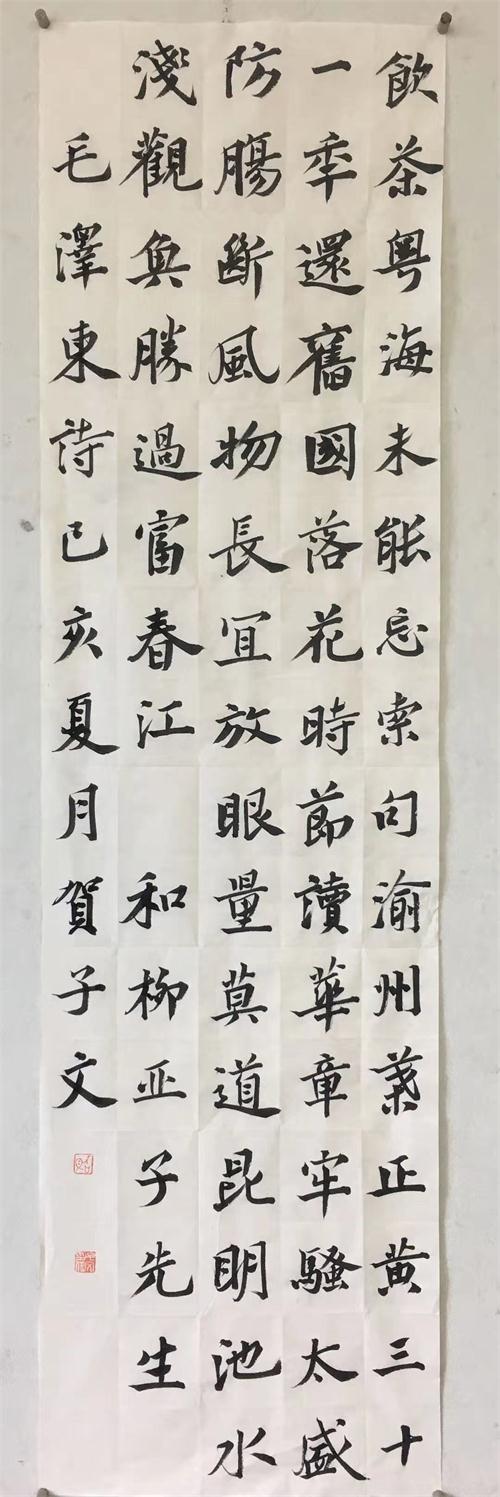 飲茶粵海未能忘索句渝州葉正黃三十
一年還舊國落花時節讀華章牢騷太盛
防腸斷風物長宜放眼量莫道昆明池水
淺觀魚勝過富春江 和柳亞子先生
毛澤東詩己亥夏月賀子文